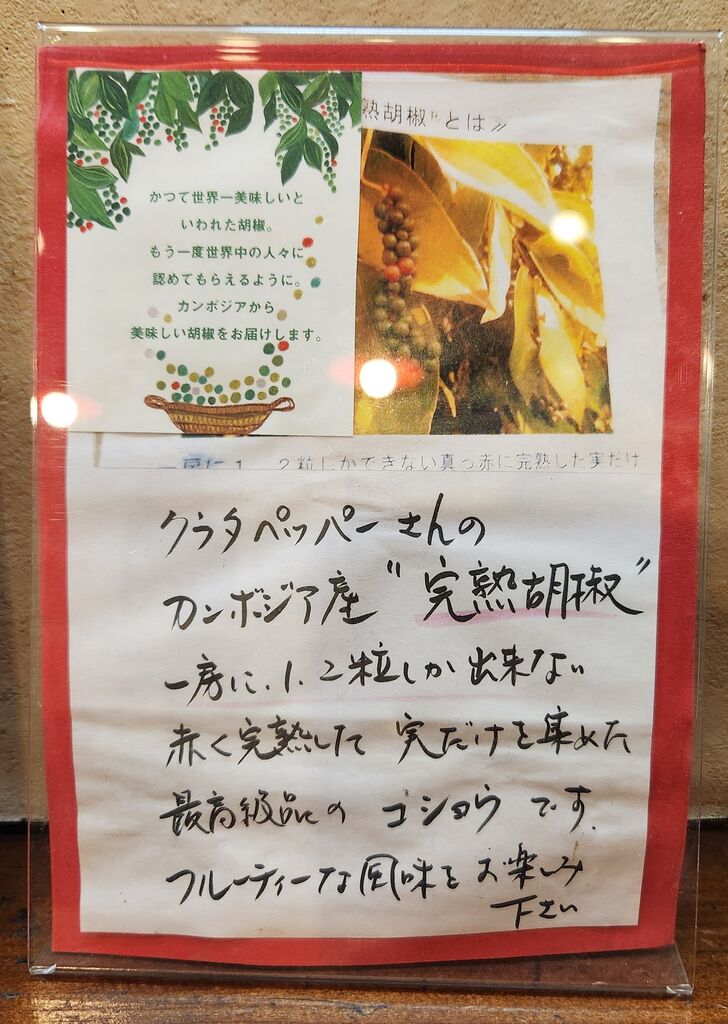 熟胡椒®とは》
かつて世界一美味しいと
いわれた胡椒。
もう一度世界中の人々に
認めてもらえるように。
カンボジアから
美味しい胡椒をお届けします。
一房に1、2粒しかできない真っ赤に完熟した実だけ
クラタペッパーさんの
カンボジア産〝完熟胡椒〟
一房に、1、2粒しか出来ない
赤く完熟して実だけを集めた
最高級品のコショウです。
フルーティーな風味をお楽しみ
下さい